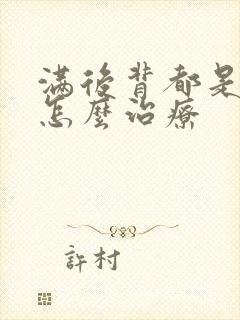 滿後背都是
怎麼治療
許村